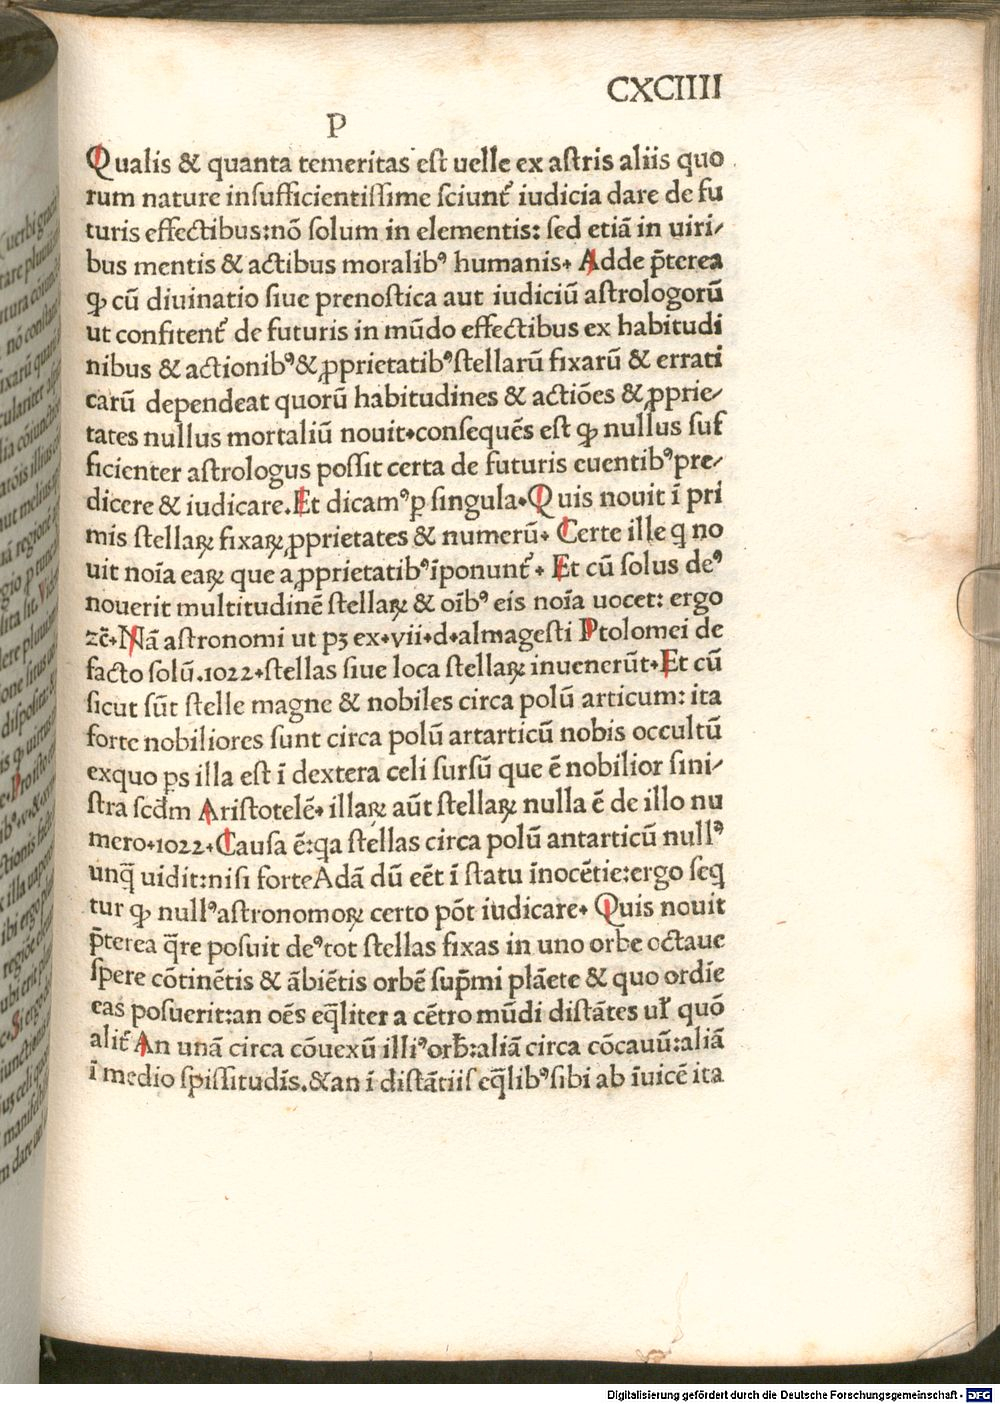 CXCIIII
P
Qualis & quanta temeritas est uelle ex astris aliis quo
rum nature insufficientissime sciunt᷑ iudicia dare de fu
turis effectibus:nō solum in elementis: sed etiā in uiri⸗
bus mentis & actibus moralibꝰ humanis. Adde p̄terea
ꝙ cū diuinatio siue prenostica aut iudiciū astrologorū
ut confitent᷑ de futuris in mūdo effectibus ex habitudi
nibus & actionibꝰ & ꝓprietatibꝰ stellarū fixarū & errati
carū dependeat quorū habitudines & actiōes & ꝓprie⸗
tates nullus mortaliū nouit.consequēs est ꝙ nullus suf
ficienter astrologus possit certa de futuris euentibꝰ pre⸗
dicere & iudicare.Et dicamꝰ ꝑ singula.Quis nouit ī pri
mis stellaꝝ fixaꝝ ꝓprietates & numerū. Certe ille q no
uit noīa eaꝝ que a ꝓprietatibꝰ īponunt᷑. Et cū solus deꝰ
nouerit multitudinē stellaꝝ & oībꝰ eis noīa uocet: ergo
zc̄.Nā astronomi ut pꝫ ex.vii.d.almagesti Ptolomei de
facto solū.1022.stellas siue loca stellaꝝ inuenerūt.Et cū
sicut sūt stelle magne & nobiles circa polū articum: ita
forte nobiliores sunt circa polū artarticū nobis occultū
exquo ps illa est ī dextera celi sursū que ē nobilior sini⸗
stra scd̄m Aristotelē. illaꝝ aūt stellaꝝ nulla ē de illo nu
mero.1022.Causa ē:qa stellas circa polū antarticū nullꝰ
unq̄ uidit:nisi forte Adā dū eēt ī statu īnocētie:ergo seq
tur ꝙ nullꝰ astronomoꝝ certo pōt iudicare. Quis nouit
p̄terea q̄re posuit deꝰ tot stellas fixas in uno orbe octaue
spere cōtinētis & ābiētis orbē sup̄mi plāete & quo ordīe
eas posuerit:an oēs eq̄liter a cētro mūdi distātes ul᷑ quō
alit᷑ An unā circa cōuexū illiꝰ orb̄:aliā circa cōcauū:aliā
ī medio spissitudīs.&an ī distātiis eq̄libꝰ sibi ab īuicē ita
Digitalisierung gefördert durch die Deutsche Forschungsgemeinschaft - DFG